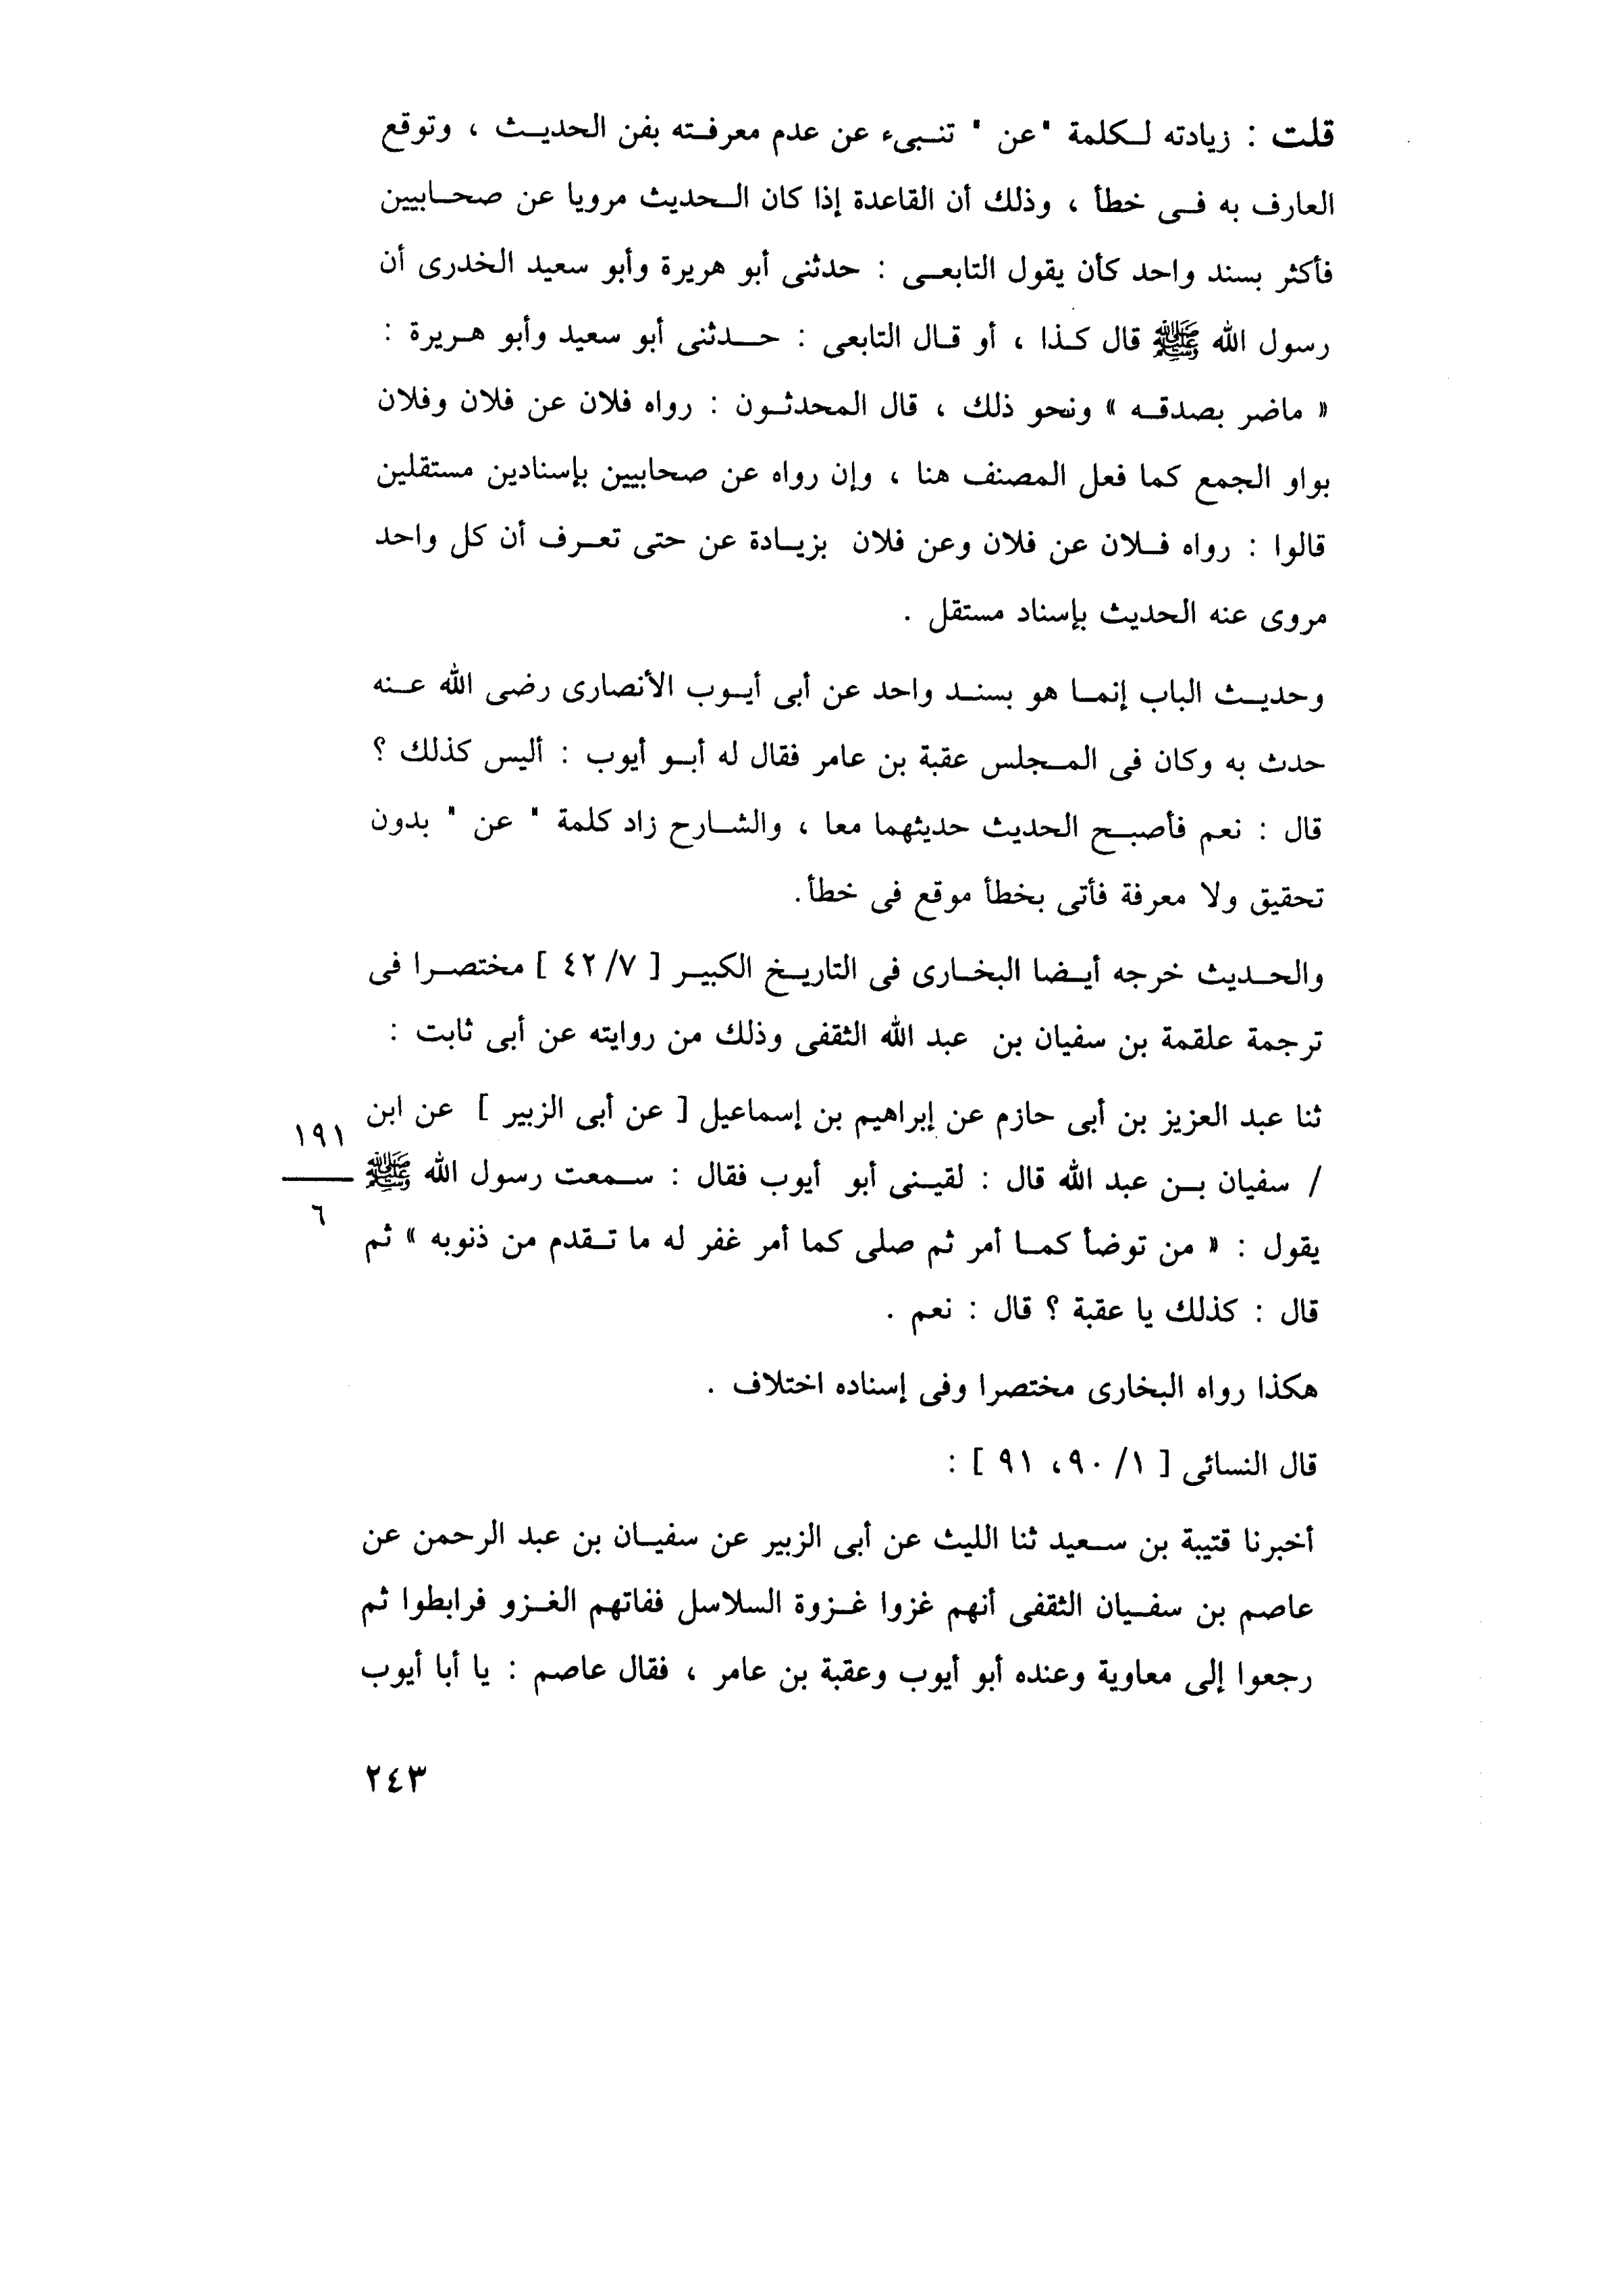 قلت : زيادته لكلمة "عن " تنبىء عن عدم معرفته بفن الحديث ، وتوقع
العارف به فى خطأ ، وذلك أن القاعدة إذا كان الحديث مرويا عن صحابيين
فأكثر بسند واحد كأن يقول التابعى : حدثنى أبو هريرة وأبو سعيد الخدرى أن
رسول الله ﷺ قال كذا ، أو قال التابعى : حدثنى أبو سعيد وأبو هريرة :
« ماضر بصدقه » ونحو ذلك ، قال المحدثون : رواه فلان عن فلان وفلان
بواو الجمع كما فعل المصنف هنا ، وإن رواه عن صحابيين بإسنادين مستقلين
قالوا : رواه فلان عن فلان وعن فلان بزيادة عن حتى تعرف أن كل واحد
مروى عنه الحديث بإسناد مستقل .
وحديث الباب إنما هو بسند واحد عن أبى أيوب الأنصارى رضى الله عنه
حدث به وكان فى المجلس عقبة بن عامر فقال له أبو أيوب : أليس كذلك ؟
قال : نعم فأصبح الحديث حديثهما معا ، والشارح زاد كلمة " عن " بدون
تحقيق ولا معرفة فأتى بخطأ موقع فى خطأ.
والحديث خرجه أيضا البخارى فى التاريخ الكبير [ ٧/ ٤٢ ] مختصرا فى
ترجمة علقمة بن سفيان بن عبد الله الثقفى وذلك من روايته عن أبى ثابت :
ثنا عبد العزيز بن أبى حازم عن إبراهيم بن إسماعيل [ عن أبى الزبير ] عن ابن
١٩١
/ سفيان بن عبد الله قال : لقينى أبو أيوب فقال : سمعت رسول الله ﷺ
٦
يقول : « من توضأ كما أمر ثم صلى كما أمر غفر له ما تقدم من ذنوبه » ثم
قال : كذلك يا عقبة ؟ قال : نعم .
هكذا رواه البخارى مختصرا وفى إسناده اختلاف .
قال النسائى [ ١/ ٩٠، ٩١ ] :
أخبرنا قتيبة بن سعيد ثنا الليث عن أبى الزبير عن سفيان بن عبد الرحمن عن
عاصم بن سفيان الثقفى أنهم غزوا غزوة السلاسل ففاتهم الغزو فرابطوا ثم
رجعوا إلى معاوية وعنده أبو أيوب وعقبة بن عامر ، فقال عاصم : يا أبا أيوب
٢٤٣